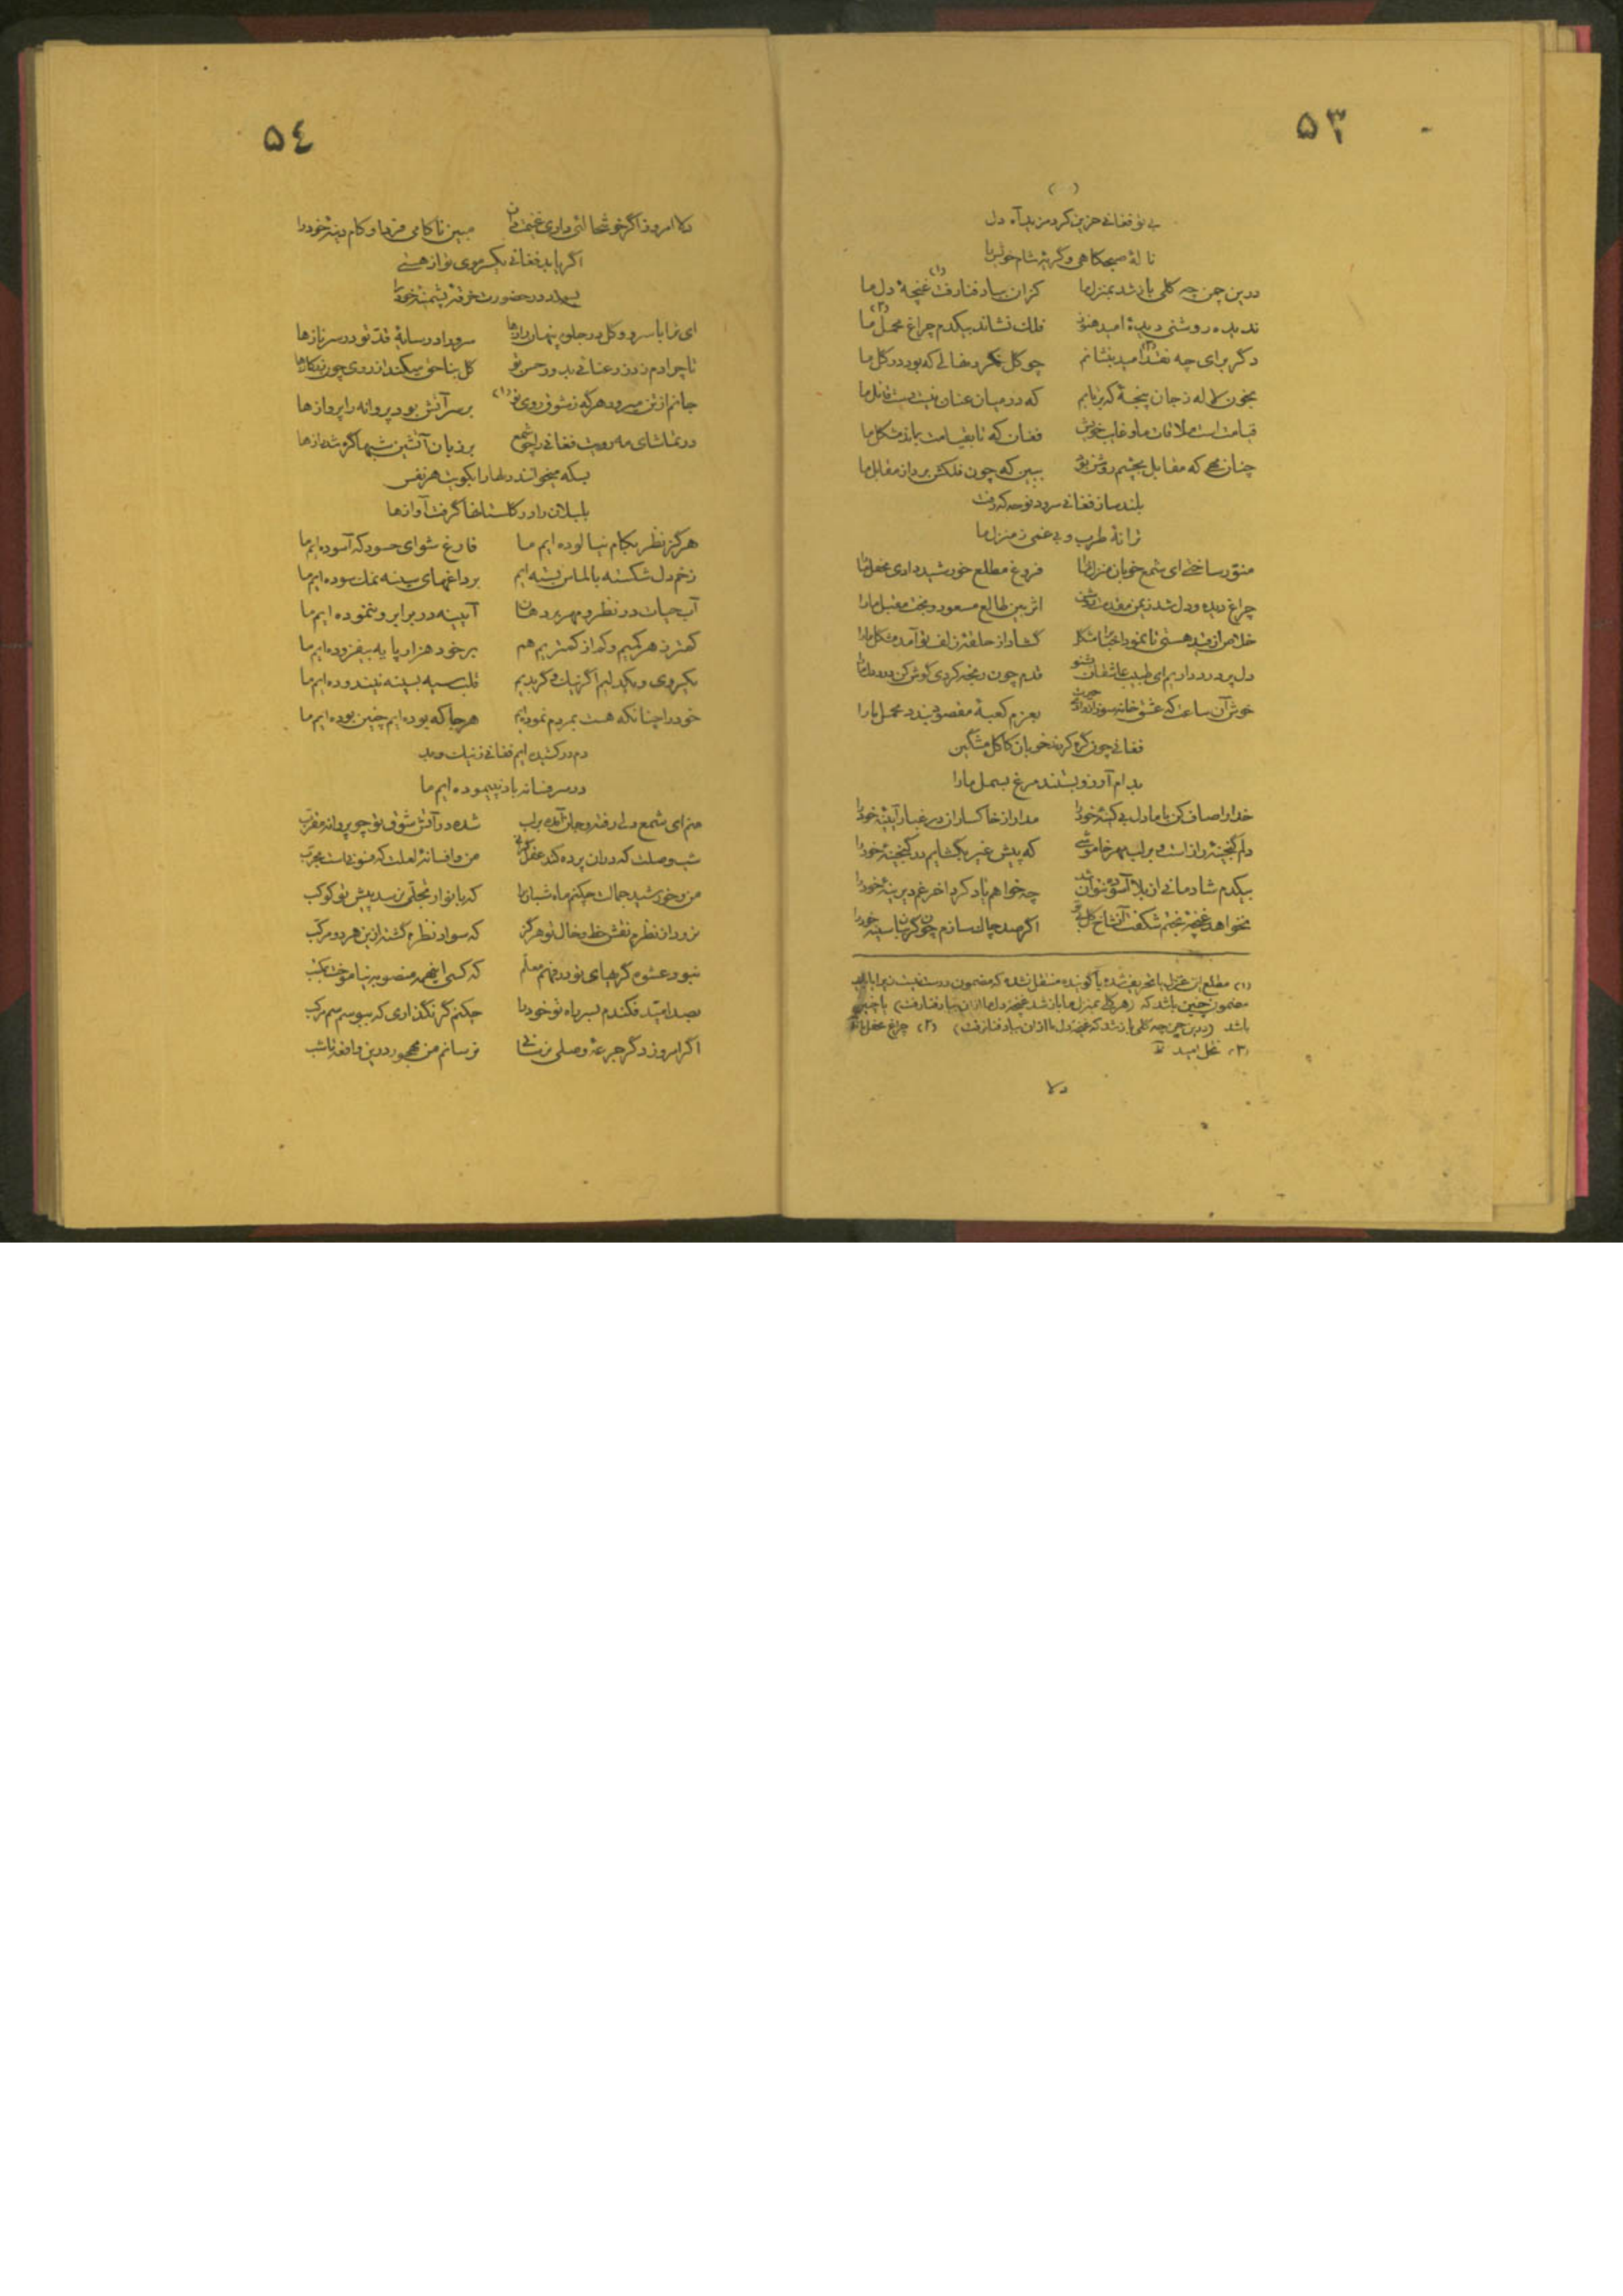 ۵۳
( )
بی تو فغانی حزین کرد مزید آه دل
نالهٔ صبحگاهی و گریهٔ شام خویش را
درین چمن چه گلی باز شد بمنزل ما کزان بباد فنا رفت (۱) غنچهٔ دل ما
ندیده روشنی دیدهٔ امید هنوز فلک نشاند بیکدم چراغ محمل (۲) ما
دگر برای چه نخل (۳) امید بنشانم چو گل نکرد نهالی که بود در گل ما
بخون لاله ز جان پنجهٔ که برتابیم که در میان عنان نیست دست قاتل ما
قیامت است ملاقات ما و غایب خویش فغان که تا بقیامت بماند مشکل ما
چنان مهی که مقابل بچشم روشن بود ببین که چون فلکش برد از مقابل ما
بلند ساز فغانی سرود نوحه که رفت
ترانهٔ طرب و بی‌غمی ز منزل ما
منور ساختی ای شمع خوبان منزل ما را فروغ مطلع خورشید دادی محفل ما را
چراغ دیده و دل شد ز یمن مقدمت روشن اثر بین طالع مسعود و بخت مقبل ما را
خلاص از قید هستی تا نمود اختیار مشکل گشاد از حلقهٔ زلف تو آمد مشکل ما را
دل پر درد داریم ای طبیب عاشقان بشنو قدم چون رنجه کردی گوش کن درد دل ما را
خوش آن ساعت که عشق خانه سوز از وادی حیرت بعزم کعبهٔ مقصود بندد محمل ما را
فغانی چون گره کردند خوبان کاکل مشکین
بدام آرزو بستند مرغ بسمل ما را
خدا را صاف کن با ما دل بی کینهٔ خود را مدار از خاکساران در غبار آیینهٔ خود را
دلم گنجینهٔ راز است و بر لب مهر خاموشی که پیش غیر نگشایم در گنجینهٔ خود را
بیکدم شادمانی از بلا آسوده نتوان شد چه خواهم یاد کرد آخر غم دیرینهٔ خود را
نخواهد غنچهٔ بختم شکفت از شاخ گل بی تو اگر صد چاک سازم چون گریبان سینهٔ خود را
(۱) مطلع این غزل یا تحریف شده یا گوینده منتقل نشده که مضمون درست نیست زیرا باید
مضمون چنین باشد که (هر گلی بمنزل ما باز شد غنچهٔ دل ما از آن بباد فنا رفت) یا چنین
باشد (درین چمن چه گلی باز شد که غنچهٔ دل ما از آن بباد فنا رفت) (۲) چراغ محفل ما
(۳) نخل امید
دلا
۵٤
دلا امروز اگر خوشحالئی داری غنیمت دان مبین ناکامی فردا و کام دینهٔ خود را
اگر یابد فغانی یکسر موی تو از هستی
بسوزد در حضورت خرقهٔ پشمینهٔ خود را
ای ترا با سرو و گل در جلوه پنهان رازها سرو را در سایهٔ قدّ تو در سر نازها
تا چرا دم زد ز رعنائی بدور حسن تو گل بناخن میکند از روی چون زر گازها
جانم از تن میرود هر گه ز شوق روی تو (۱) بر سر آتش بود پروانه را پروازها
در تماشای مه رویت فغانی را چو شمع بر زبان آتشین شبها گره شد رازها
بسکه میخوانند دلها را بکویت هر نفس
بلبلان را در گلستانها گرفت آوازها
هرگز نظر بکام نیالوده ایم ما فارغ شو ای حسود که آسوده ایم ما
زخم دل شکسته بالماس بسته ایم بر داغهای سینه نمک سوده ایم ما
آب حیات در نظر و مهر بر دهان آیینه در برابر و ننموده ایم ما
کمتر ز هر کمیم و کم از کمتریم هم بر خود هزار پایه نیفزوده ایم ما
یکروی و یکدلیم اگر نیک و گر بدیم قلب سیه بسینه نیندوده ایم ما
خود را چنانکه هست بمردم نموده ایم هر جا که بوده ایم چنین بوده ایم ما
دم در کشیده ایم فغانی ز نیک و بد
در سر فسانه باد نپیموده ایم ما
منم ای شمع دل رفته و جان آمده بر لب شده در آتش شوق تو چو پروانه مقرّب
شب وصلست که در آن پرده کند عقل من و افسانهٔ لعلت که فسونیست مجرّب
من و خورشید جمالت چکنم ماه شبان را که بانوار تجلّی نرسد پیش تو کوکب
نرود از نظرم نقش خط و خال تو هرگز که سواد نظرم گشته ازین هر دو مرکّب
نبود عشوه گریهای تو در فهم معلّم که کسی اینهمه منصوبه نیاموخت بمکتب
بصد امید فکندم بسر راه تو خود را چکنم گر نگذاری که ببوسم سم مرکب
اگر امروز دگر جرعهٔ وصلی نرسانی نرسانم من مهجور درین واقعه تا شب